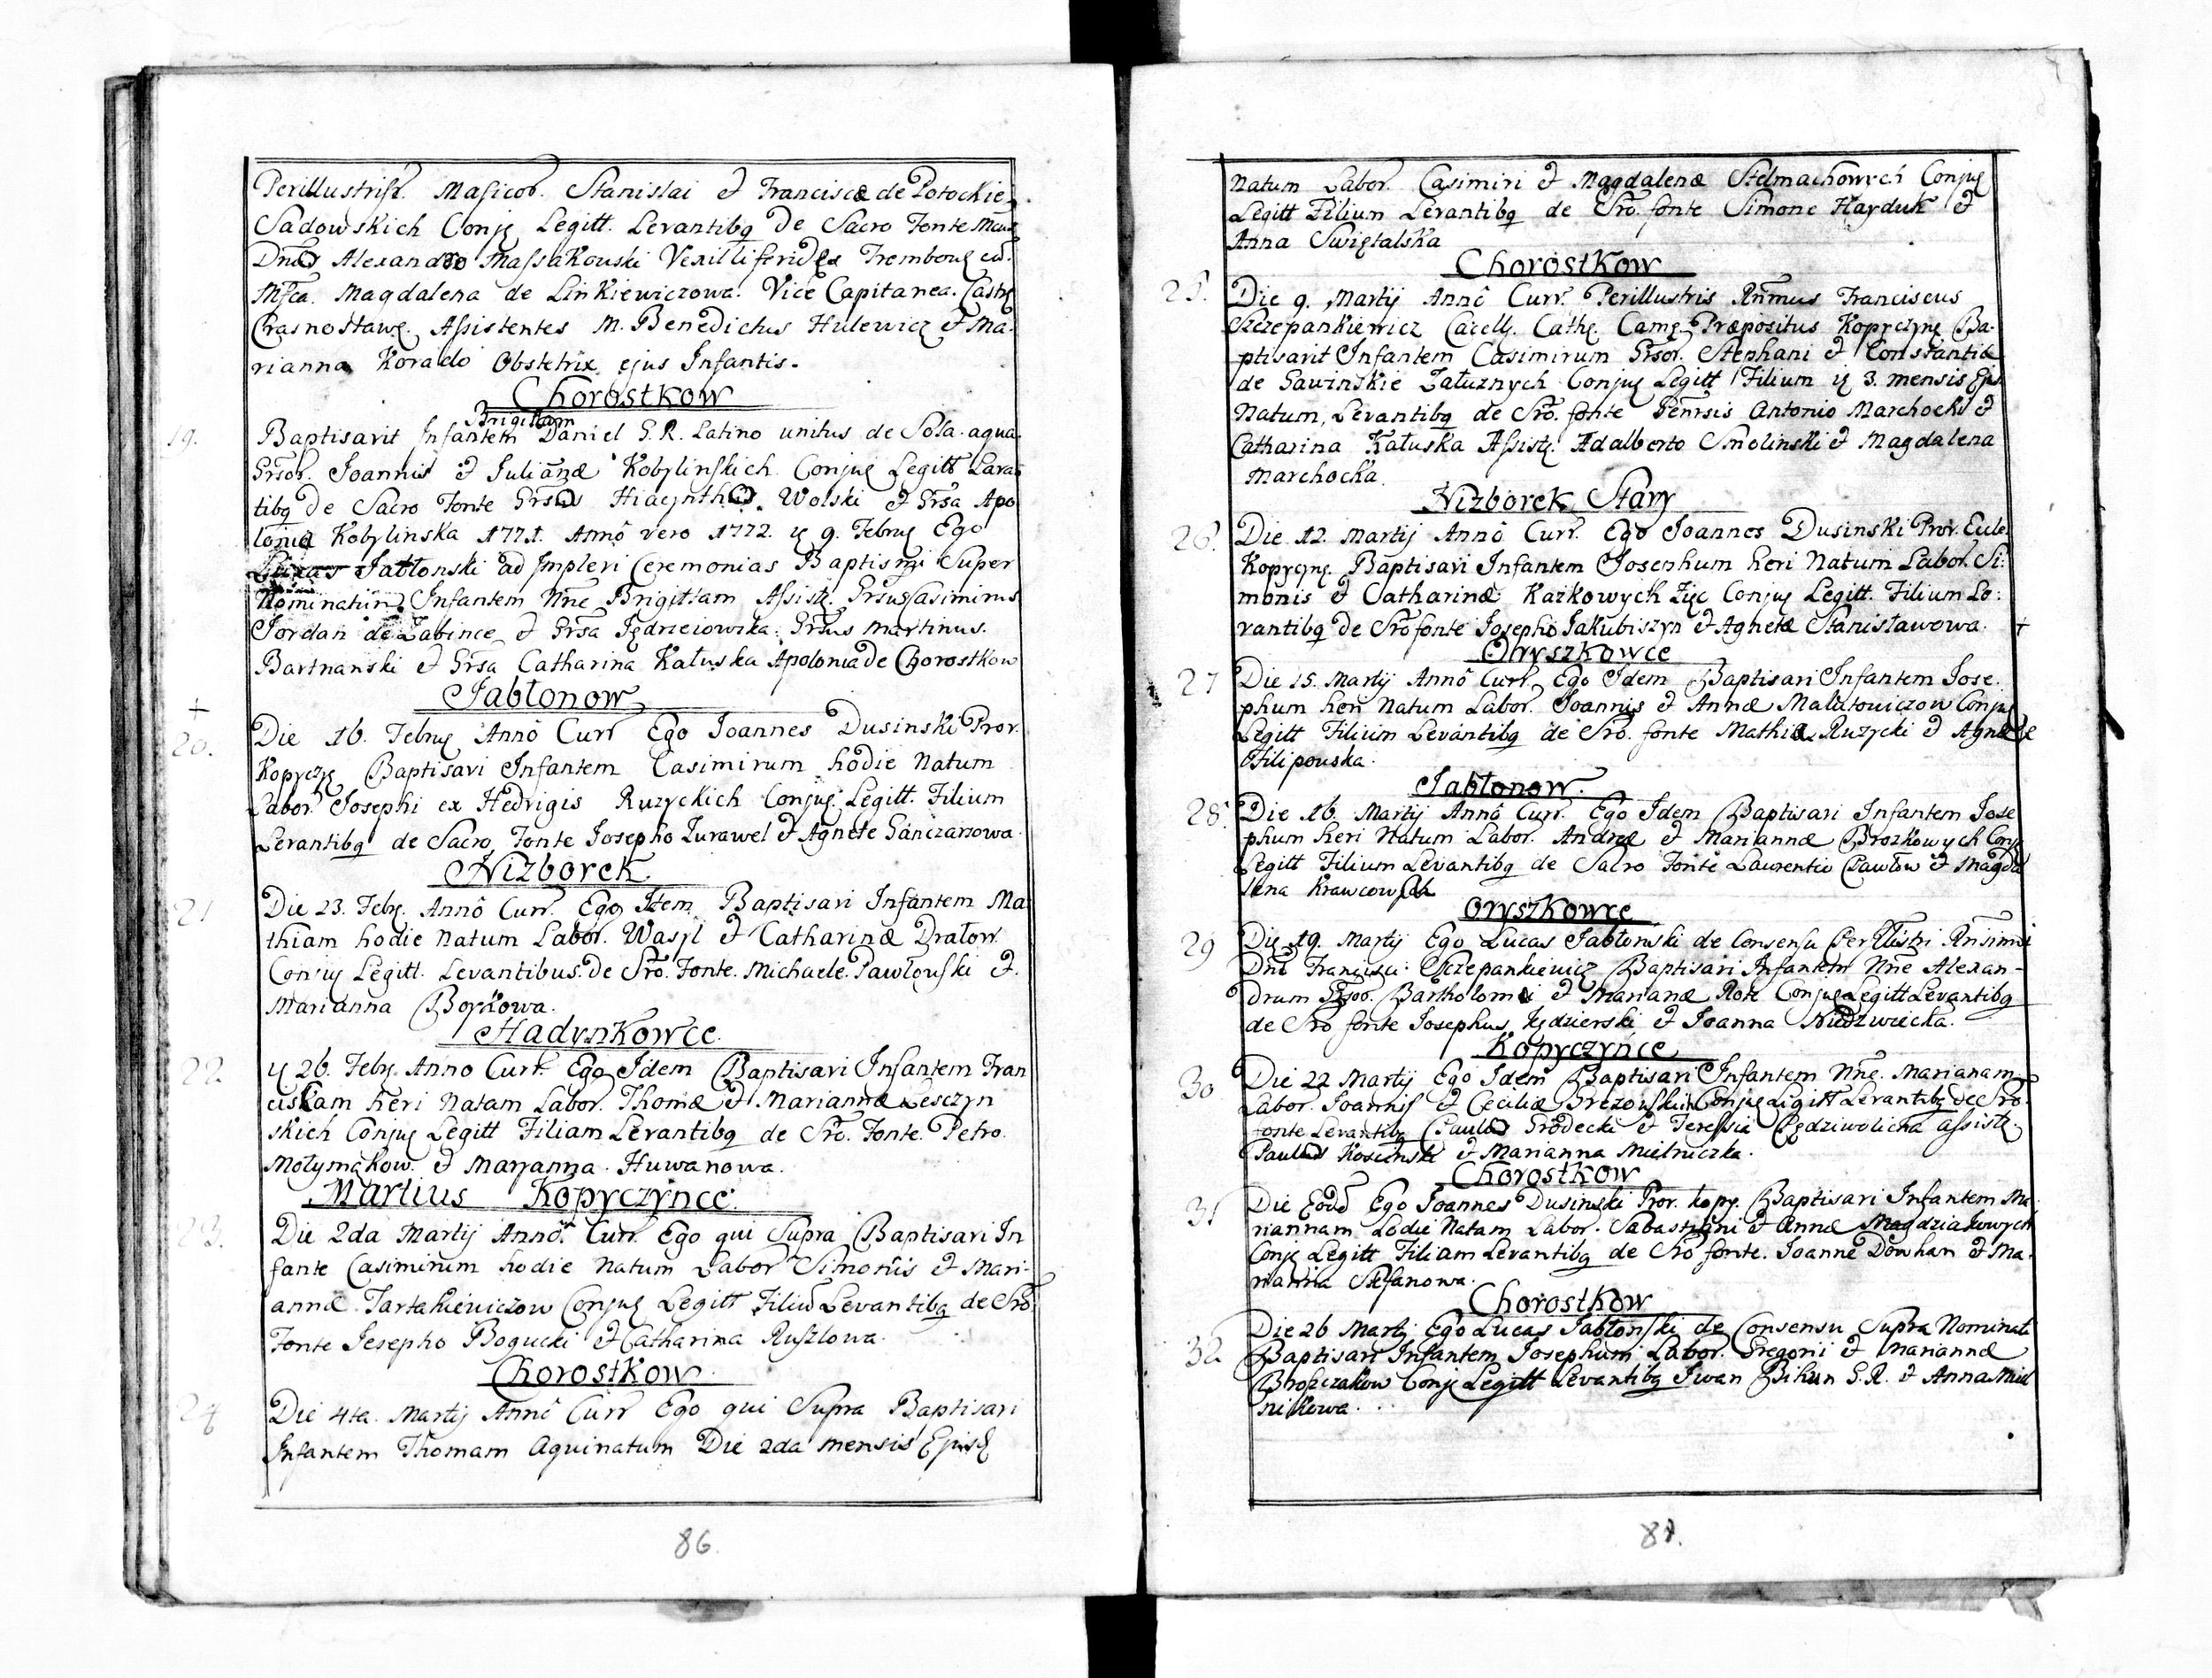 Perillustris. Maficor. Stanislai et Franciscæ de Potockie
Sadowskich Conjg Legitt. Levantibq de Sacro Fonte
Alexandro Massakouski Vexilliferides Trembowg
Magdalena de Linkiewiczowa. Vice Capitanea. Castrg
Crasnostawg. Assistentes M. Benedictus Hulewicz et Ma-
rianna Korado Obstetrix ejus Infantis.
Chorostkow
Brigittam
19. Baptisavit Infantem Daniel G.R. Latino unitus de Sola aqua
Grsor. Joannis et Julianæ Kobylinskich Conjug Legitt Levan
tibq de Sacro Fonte Hiacynth Wolski et Grsa Apo
lonia Kobylinska 1771. Annô vero 1772. g 9. Febrg Ego
Lucas Jabłonski ad Impleri Ceremonias Baptismi Super
Nominatum Infantem Nne Brigittam Assistg. Grsus Casimirus
Jordan de Zabince et Grsa Jędrzeiowska Grsus Martinus.
Bartnanski et Grsa Catharina Kałuska Apolonia de Chorostkow
Jabłonow
+
20. Die 16. Febrg Annô Curr Ego Joannes Dusinski Pror.
Kopyczg Baptisavi Infantem Casimirum hodie Natum
Labor. Josephi ex Hedvigis Ruzyckich Conjug. Legitt. Filium
Levantibq de Sacro Fonte Josepho Zurawel et Agnete Ganczarzowa
Nizborek
21 Die 23. Febg. Annô Curr. Ego Item Baptisavi Infantem Ma
thiam hodie Natum Labor. Wasyl et Catharinæ Drałow
Conjug Legitt. Levantibus de Sro. Fonte. Michaele. Pawłouski et.
Marianna Boykowa.
Hadynkowce.
22. g 26. Febg. Anno Curr. Ego Idem Baptisavi Infantem Fran
ciskam heri Natam Labor. Thomæ et Mariannæ Lesczyn
skich Conjug Legitt Filiam Levantibq de Sro. Fonte. Petro
Motymakow. et Maryanna. Huwanowa.
Martius Kopyczynce.
23. Die 2da Martij Annô Curr. Ego qui Supra Baptisavi In
fante Casimirum hodie Natum Labor Simonis et Mari-
annæ. Tartakieviczow Conjug Legitt Filiũ Levantibq de Sro
Fonte Josepho Bogucki et Catharina Ruszlowa.
Chorostkow
24 Die 4ta. Martij Annô Curr Ego qui Supra Baptisavi
Infantem Thomam Aquinatum Die 2da mensis Ejusd
86.
Natum Labor. Casimiri et Magdalenæ Stelmachowych Conjug
Legitt Filium Levantibq de Sro. fonte Simone Hayduk et
Anna Swiętalska
Chorostkow
25. Die 9. Martij Annô Curr. Perillustris Rnmus Franciscus
Szczepankiewicz Cacelly. Cathg. Camg Præpositus Kopyczyng Ba-
ptisavit Infantem Casimirum Grsor. Stephani et Constantiæ
de Gawinskie Załuznych Conjug Legitt Filium g 3. mensis Ejus
Natum, Levantibq de Sro. fonte Genrsis Antonio Marchocki et
Catharina Kałuska Assistg. Adalberto Smolinski et Magdalena
Marchocka.
Nizborek Stary
26. Die 12. Martij Annô Curr. Ego Joannes Dusinski Pror. Eccle.
Kopyczyng. Baptisavi Infantem Josephum heri Natum Labor. Si:
monis et Catharinæ Kazkowych Conjug Legitt. Filium Le:
vantibq de Sro fonte Josepho Jakubiszyn et Agnetæ Stanisławowa. +
Oryszkowce
27 Die 15. Martij Annô Curr. Ego Idem Baptisavi Infantem Jose.
phum heri Natum Labor. Joannis et Annæ Malutowiczow Conjug
Legitt Filium Levantibq de Sro. fonte Mathiæ Ruzycki et Agnete
Filipouska.
Jabłonow.
28. Die 16. Martij Annô Curr. Ego Idem Baptisavi Infantem Jose
phum heri Natum Labor. Andreæ et Mariannæ Brozkowych Conjg
Legitt Filium Levantibq de Sacro Fonte Laurentio Pawłow et Magda
lena Krawcowych
Oryszkowce
29 Die 19. Martij Ego Lucas Jabłonski de Consensu Perillustri Rnsimi
Dni Francisci Szczepankievicz Baptisavi Infantem Nne Alexan-
drum Grsor. Bartholomei et Marianæ Rote Conjug Legitt Levantibq
de Sro fonte Josephus Jędzierski et Joanna Niedzwiecka.
Kopyczynce
30 Die 22 Martij Ego Idem Baptisavi Infantem Nne. Marianam
Labor. Joannis et Ceciliæ Brezouskich Conjug Ligitt Levantibq de Sro
fonte Levantibq Paulus Grodecki et Teressia Pędziwolicha assistg.
Paulus Kosienski et Marianna Mielniczka.
Chorostkow
31 Die Eodẽ Ego Joannes Dusinski Pror. kopy. Baptisavi Infantem Ma
riannam Lodie Natam Labor. Sabastyani et Annæ Magdziakowych
Conjg Legitt Filiam Levantibq de Sro fonte. Joanne Dowhan et Ma.
rianna Stefanowa.
Chorostkow
32 Die 26 Martij Ego Lucas Jabłonski de Consensu Supra Nominati
Baptisavi Infantem Josephum Labor. Gregorii et Mariannæ
Brozczakow Conjg Legitt Levantibq Iwan Bikun G.R. et Anna Miel
nikowa.
87.